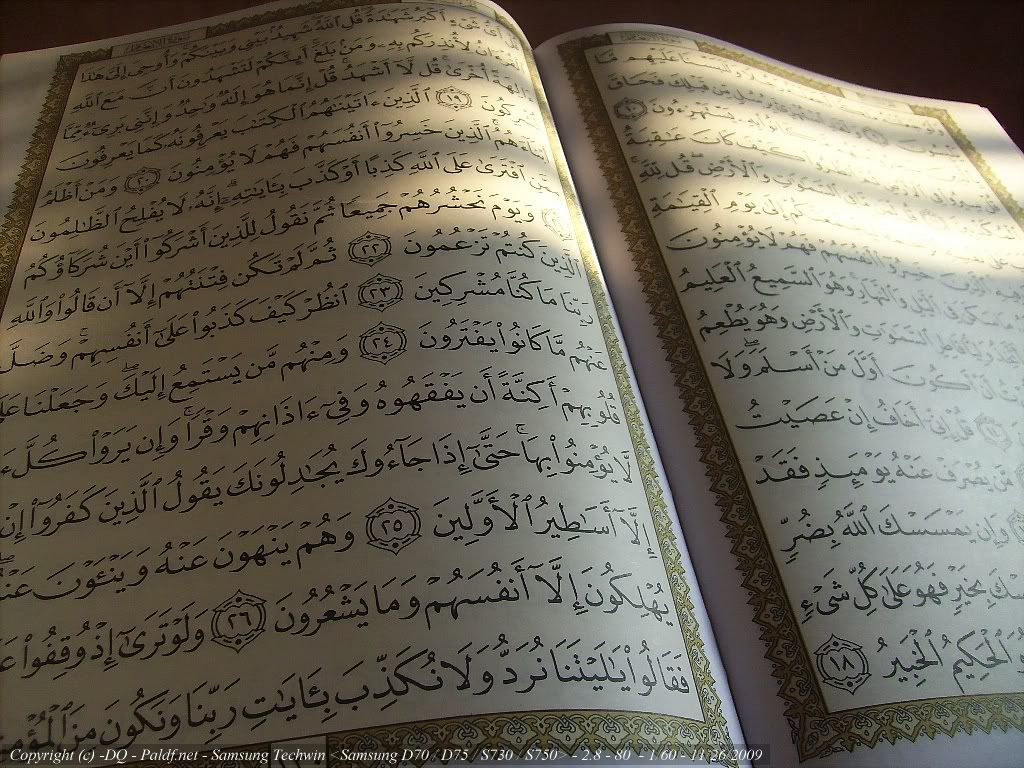 وَلَلَبَسْنَا عَلَيْهِم مَّا
بِرُسُلٍ مِّن قَبْلِكَ فَحَاقَ
كَانُوا۟ بِهِۦ يَسْتَهْزِءُونَ
قُلْ سِيرُوا۟ فِى ٱلْأَرْضِ ثُمَّ ٱنظُرُوا۟ كَيْفَ كَانَ عَٰقِبَةُ
ٱلسَّمَٰوَٰتِ وَٱلْأَرْضِ قُل لِّلَّهِ
إِلَىٰ يَوْمِ ٱلْقِيَٰمَةِ
فِيهِ ٱلَّذِينَ خَسِرُوٓا۟ أَنفُسَهُمْ فَهُمْ لَا يُؤْمِنُونَ
مَا سَكَنَ فِى ٱلَّيْلِ وَٱلنَّهَارِ وَهُوَ ٱلسَّمِيعُ ٱلْعَلِيمُ
فَاطِرِ ٱلسَّمَٰوَٰتِ وَٱلْأَرْضِ وَهُوَ يُطْعِمُ
أَنْ أَكُونَ أَوَّلَ مَنْ أَسْلَمَ وَلَا
قُلْ إِنِّىٓ أَخَافُ إِنْ عَصَيْتُ
مَّن يُصْرَفْ عَنْهُ يَوْمَئِذٍ فَقَدْ
وَإِن يَمْسَسْكَ ٱللَّهُ بِضُرٍّ
بِخَيْرٍ فَهُوَ عَلَىٰ كُلِّ شَىْءٍ
ٱلْحَكِيمُ ٱلْخَبِيرُ ١٨
قُلْ أَىُّ شَىْءٍ أَكْبَرُ شَهَٰدَةً قُلِ ٱللَّهُ شَهِيدٌۢ بَيْنِى وَبَيْنَكُمْ وَأُوحِىَ إِلَىَّ هَٰذَا
ٱلْقُرْءَانُ لِأُنذِرَكُم بِهِۦ وَمَنۢ بَلَغَ أَئِنَّكُمْ لَتَشْهَدُونَ أَنَّ مَعَ ٱللَّهِ
ءَالِهَةً أُخْرَىٰ قُل لَّآ أَشْهَدُ قُلْ إِنَّمَا هُوَ إِلَٰهٌ وَٰحِدٌ وَإِنَّنِى بَرِىٓءٌ مِّمَّا
تُشْرِكُونَ ١٩ ٱلَّذِينَ ءَاتَيْنَٰهُمُ ٱلْكِتَٰبَ يَعْرِفُونَهُۥ كَمَا يَعْرِفُونَ
أَبْنَآءَهُمُ ٱلَّذِينَ خَسِرُوٓا۟ أَنفُسَهُمْ فَهُمْ لَا يُؤْمِنُونَ ٢٠ وَمَنْ أَظْلَمُ
مِمَّنِ ٱفْتَرَىٰ عَلَى ٱللَّهِ كَذِبًا أَوْ كَذَّبَ بِـَٔايَٰتِهِۦٓ إِنَّهُۥ لَا يُفْلِحُ ٱلظَّٰلِمُونَ
وَيَوْمَ نَحْشُرُهُمْ جَمِيعًا ثُمَّ نَقُولُ لِلَّذِينَ أَشْرَكُوٓا۟ أَيْنَ شُرَكَآؤُكُمُ
ٱلَّذِينَ كُنتُمْ تَزْعُمُونَ ٢٢ ثُمَّ لَمْ تَكُن فِتْنَتُهُمْ إِلَّآ أَن قَالُوا۟ وَٱللَّهِ
رَبِّنَا مَا كُنَّا مُشْرِكِينَ ٢٣ ٱنظُرْ كَيْفَ كَذَبُوا۟ عَلَىٰٓ أَنفُسِهِمْ وَضَلَّ
عَنْهُم مَّا كَانُوا۟ يَفْتَرُونَ ٢٤ وَمِنْهُم مَّن يَسْتَمِعُ إِلَيْكَ وَجَعَلْنَا
قُلُوبِهِمْ أَكِنَّةً أَن يَفْقَهُوهُ وَفِىٓ ءَاذَانِهِمْ وَقْرًا وَإِن يَرَوْا۟ كُلَّ
لَّا يُؤْمِنُوا۟ بِهَا حَتَّىٰٓ إِذَا جَآءُوكَ يُجَٰدِلُونَكَ يَقُولُ ٱلَّذِينَ كَفَرُوٓا۟ إِنْ
إِلَّآ أَسَٰطِيرُ ٱلْأَوَّلِينَ ٢٥ وَهُمْ يَنْهَوْنَ عَنْهُ وَيَنْـَٔوْنَ عَنْهُ
يُهْلِكُونَ إِلَّآ أَنفُسَهُمْ وَمَا يَشْعُرُونَ ٢٦ وَلَوْ تَرَىٰٓ إِذْ وُقِفُوا۟
فَقَالُوا۟ يَٰلَيْتَنَا نُرَدُّ وَلَا نُكَذِّبَ بِـَٔايَٰتِ رَبِّنَا وَنَكُونَ مِنَ ٱلْمُؤْمِنِينَ
Copyright (c) -DQ - Paldf.net - Samsung Techwin - Samsung D70 / D75 / S730 / S750 - - 2.8 - 80 - 1.60 - 11/26/2009